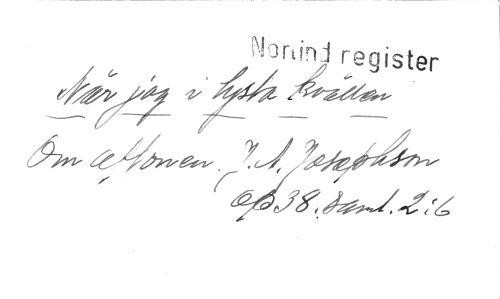 Norlind register
När jag i tysta kvällen
Om aftonen. J. A. Josephson
op 38. Saml. 2:6